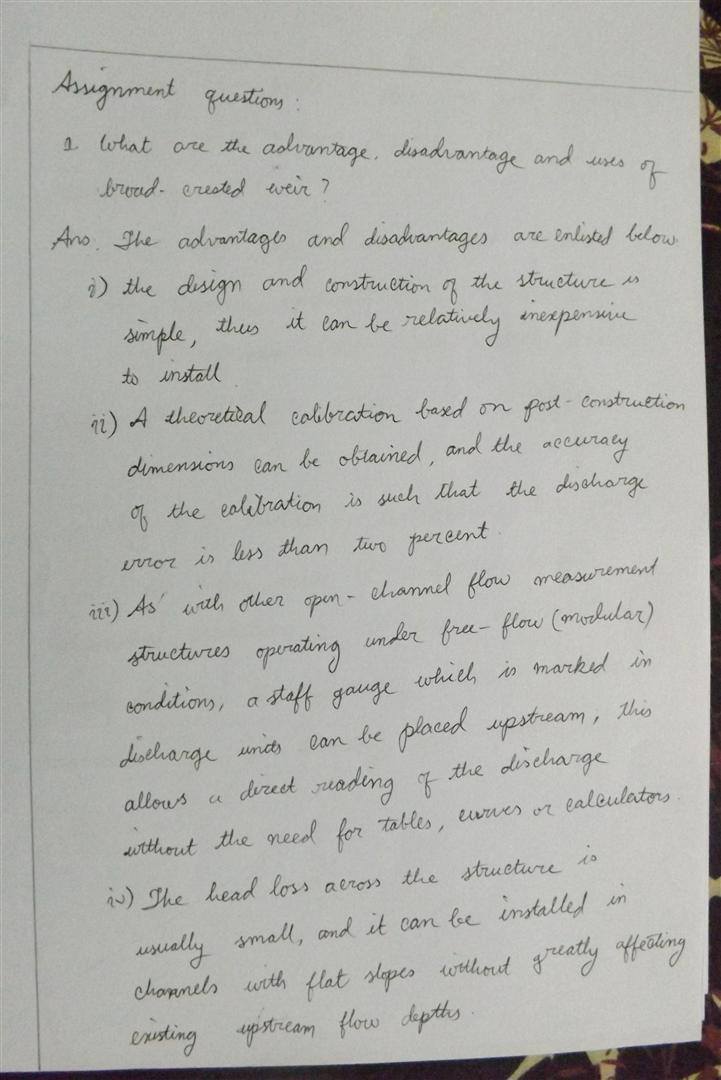 Assignment questions:
1. What are the advantage, disadvantage and uses of
broad-crested weir?
Ans. The advantages and disadvantages are enlisted below.
i) the design and construction of the structure is
simple, thus it can be relatively inexpensive
to install.
ii) A theoretical calibration based on post-construction
dimensions can be obtained, and the accuracy
of the calibration is such that the discharge
error is less than two percent.
iii) As with other open-channel flow measurement
structures operating under free-flow (modular)
conditions, a staff gauge which is marked in
discharge units can be placed upstream, this
allows a direct reading of the discharge
without the need for tables, curves or calculators.
iv) The head loss across the structure is
usually small, and it can be installed in
channels with flat slopes without greatly affecting
existing upstream flow depths.